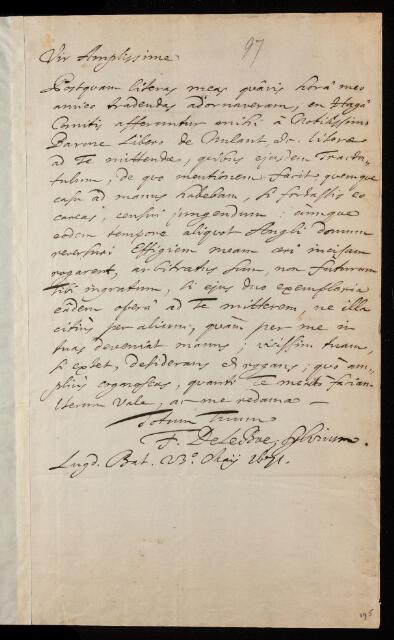 97
Vir Amplissime
Postquam literas meas quâvis horâ meo
amico tradendas adornaveram, en Hagâ
Comitis afferuntur mihi à Nobilissimo
Barone Libero de Nulant, &c. literæ
ad Te mittendæ, quibus ejusdem Tracta-
tulum, de quo mentionem facit, quemque
casu ad manus habebam, si fortassis eo
careas, censui jungendum: cumque
eodem tempore aliquot Angli domum
reversuri Effigiem meam æri incisam
rogarent, arbitratus sum, non futurum
tibi ingratum, si ejus duo exemplaria
eâdem operâ ad Te mitterem, ne illa
citiùs per alium, quàm per me in
tuas deveniat manus; vicissim tuam,
si extet, desiderans et rogans; quò am-
pliùs cognoscas, quanti Te meritò faciam
Iterum Vale, ac me redama —
Totum Tuum
F. DeleBoe, Sylvium.
Lugd. Bat. 23.° Maij 1671.
195